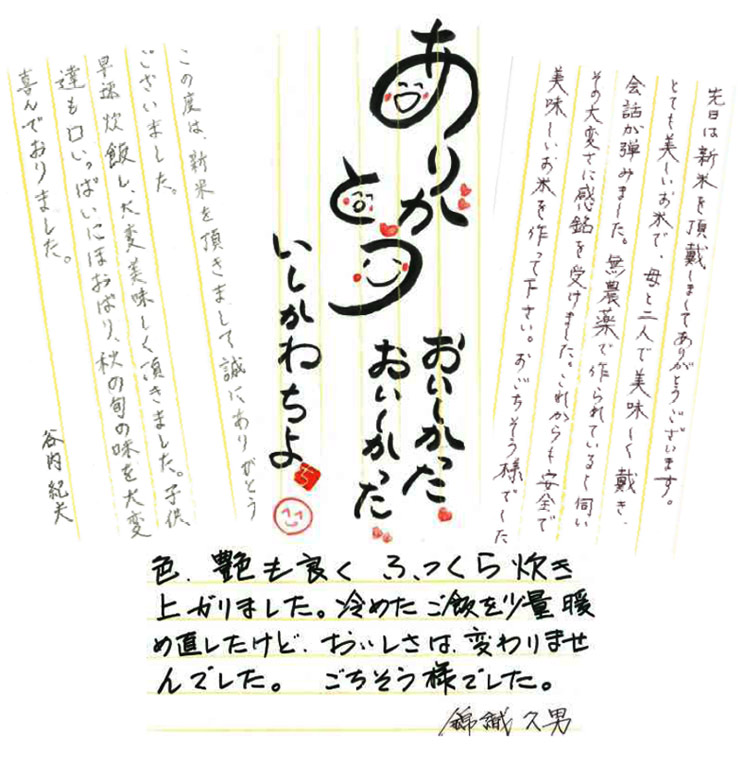 先日は新米を頂戴しましてありがとうございます。
とても美しいお米で、母と二人で美味しく戴き、
会話が弾みました。無農薬で作られていると伺い
その大変さに感銘を受けました。これからも安全で
美味しいお米を作って下さい。おごちそう様でした
ありが
とう
おいしかった
おいしかった
いしかわちよ
この度は、新米を頂きまして誠にありがとう
ございました。
早速炊飯し、大変美味しく頂きました。子供
達も口いっぱいにほおばり、秋の旬の味を大変
喜んでおりました。
谷内紀夫
色、艶も良く ふっくら炊き
上がりました。冷めたご飯を少量暖
め直したけど、おいしさは、変わりませ
んでした。 ごちそう様でした。
錦織久男